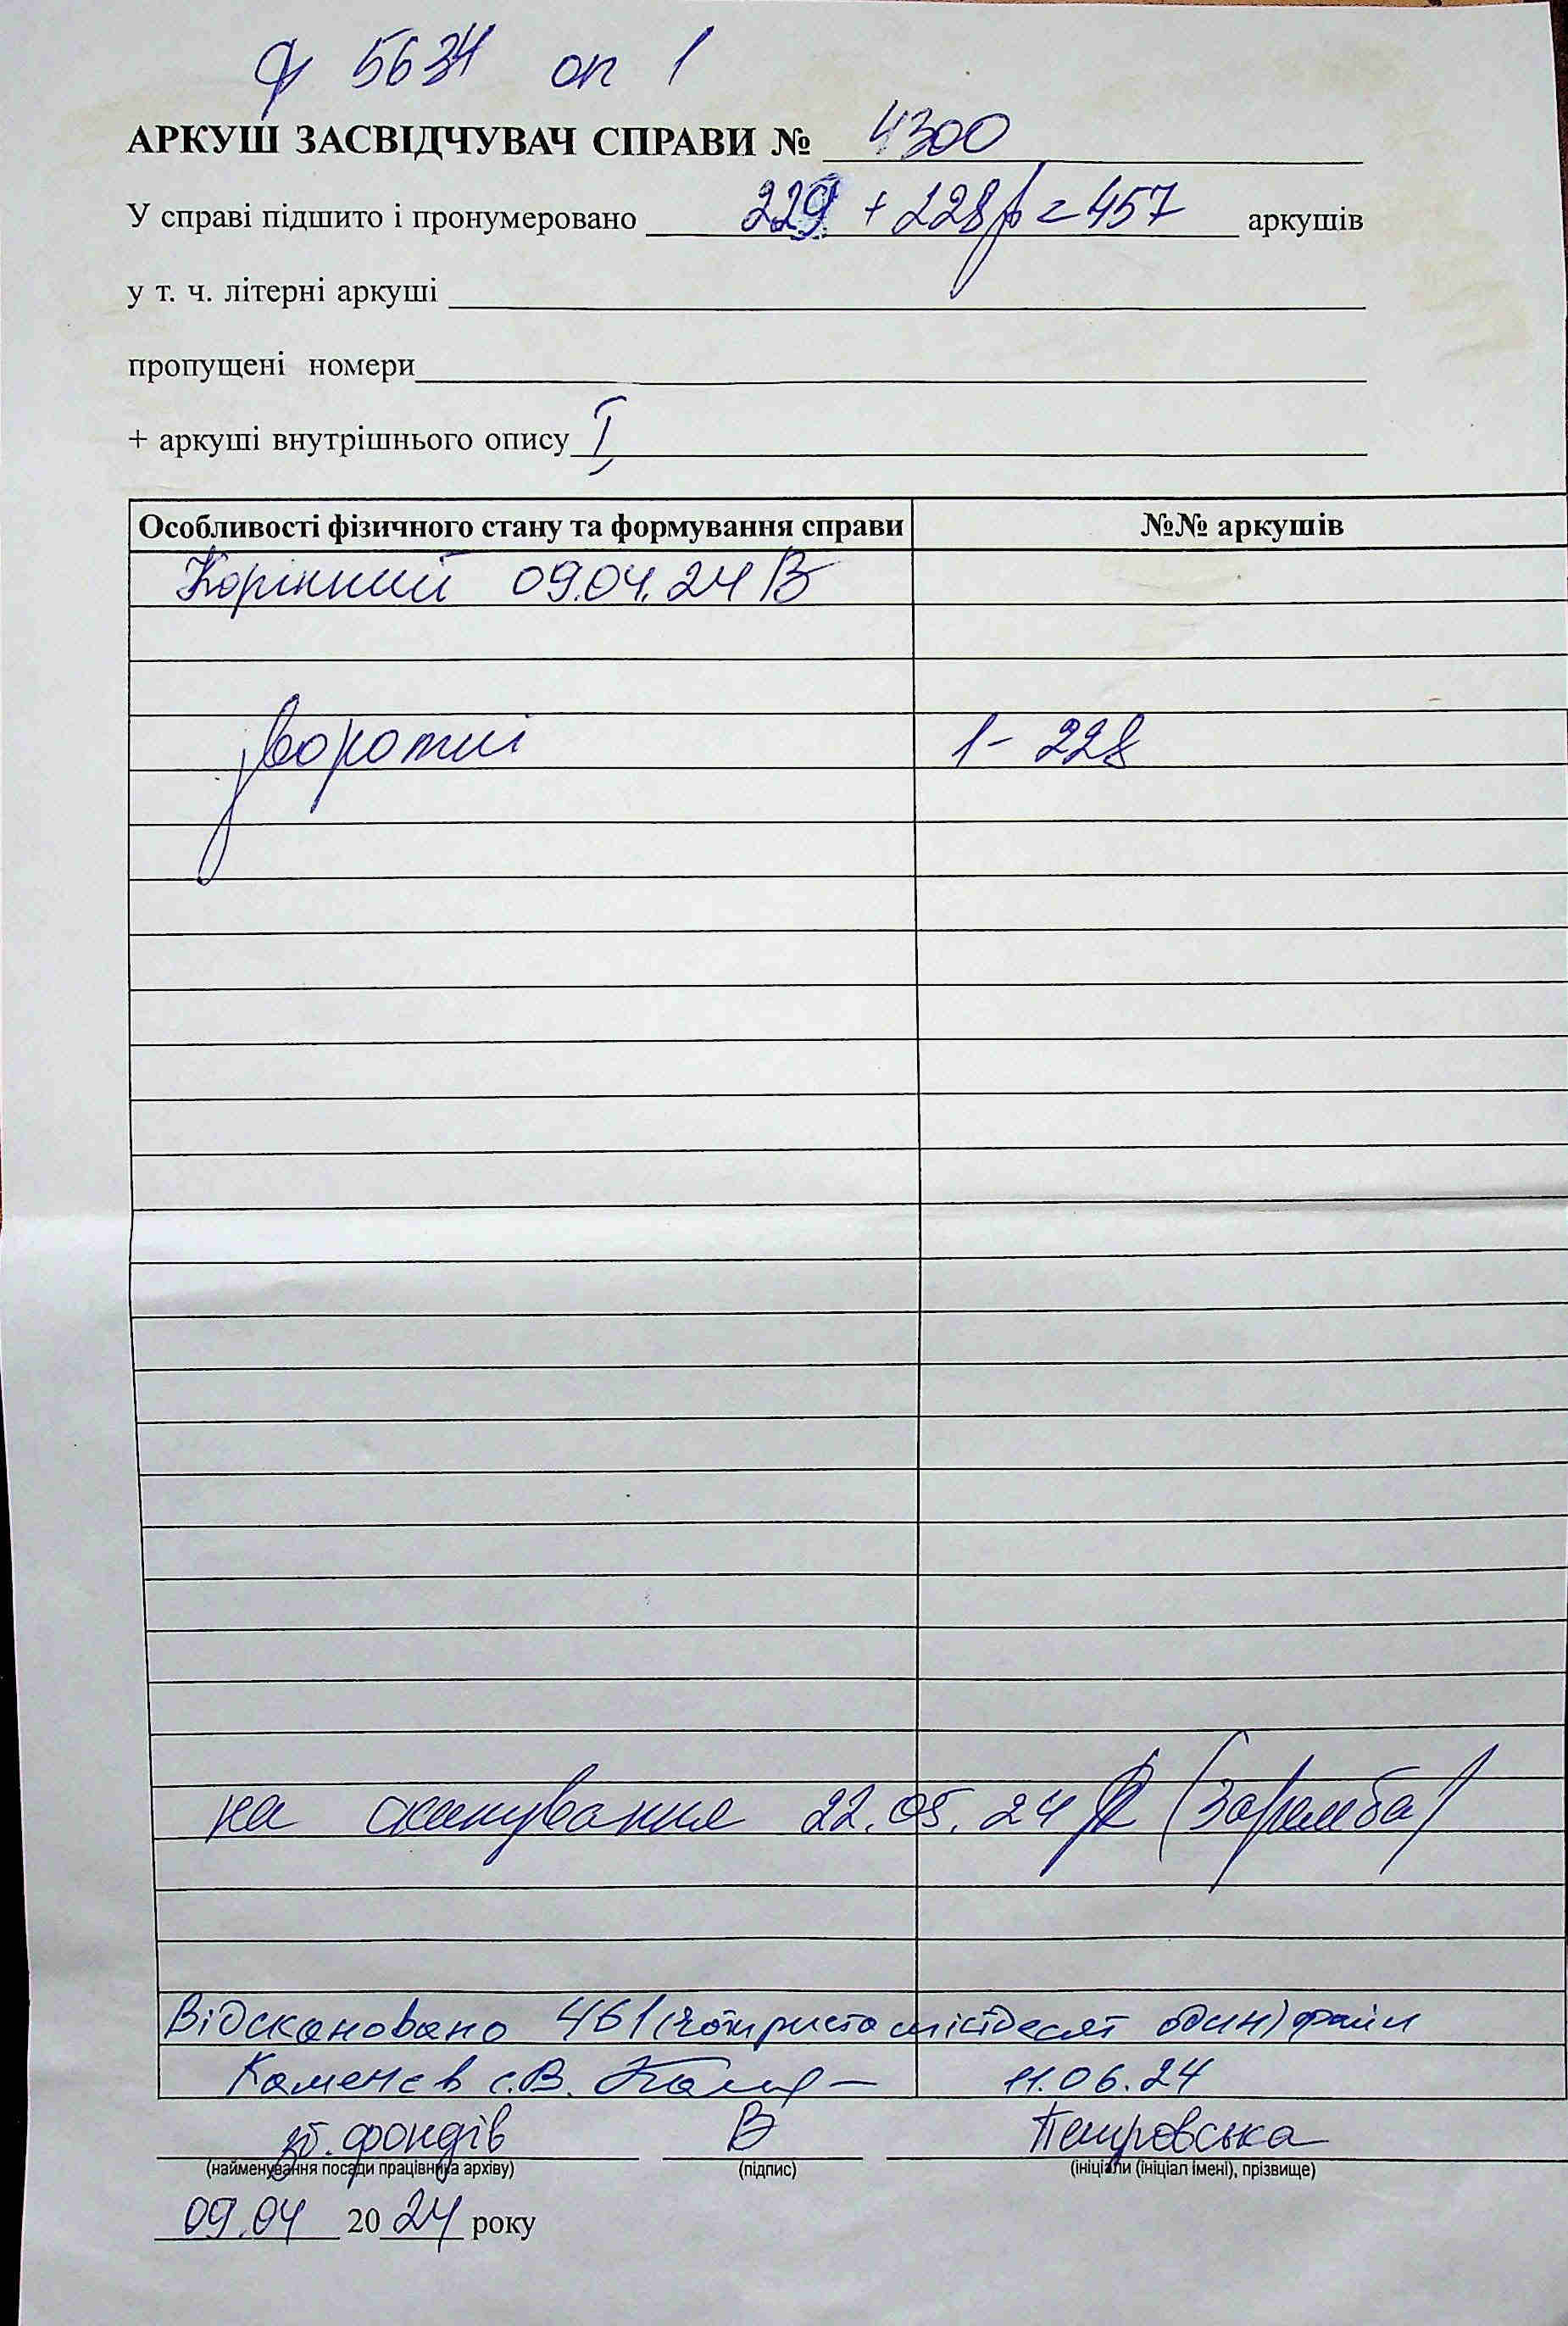 ф 5634 оп 1
АРКУШ ЗАСВІДЧУВАЧ СПРАВИ № 4300
У справі підшито і пронумеровано 229 + 228 = 457 аркушів
у т. ч. літерні аркуші
пропущені номери
+ аркуші внутрішнього опису I
Особливості фізичного стану та формування справи №№ аркушів
Корінний 09.04.24 В
звороти 1-228
на сканування 22.05.24 (Заремба)
Відскановано 461 (чотириста шістдесят один) файл
Каменєв С.В. 11.06.24
зб. фондів В Петровська
(найменування посади працівника архіву) (підпис) (ініціали (ініціал імені), прізвище)
09.04 2024 року